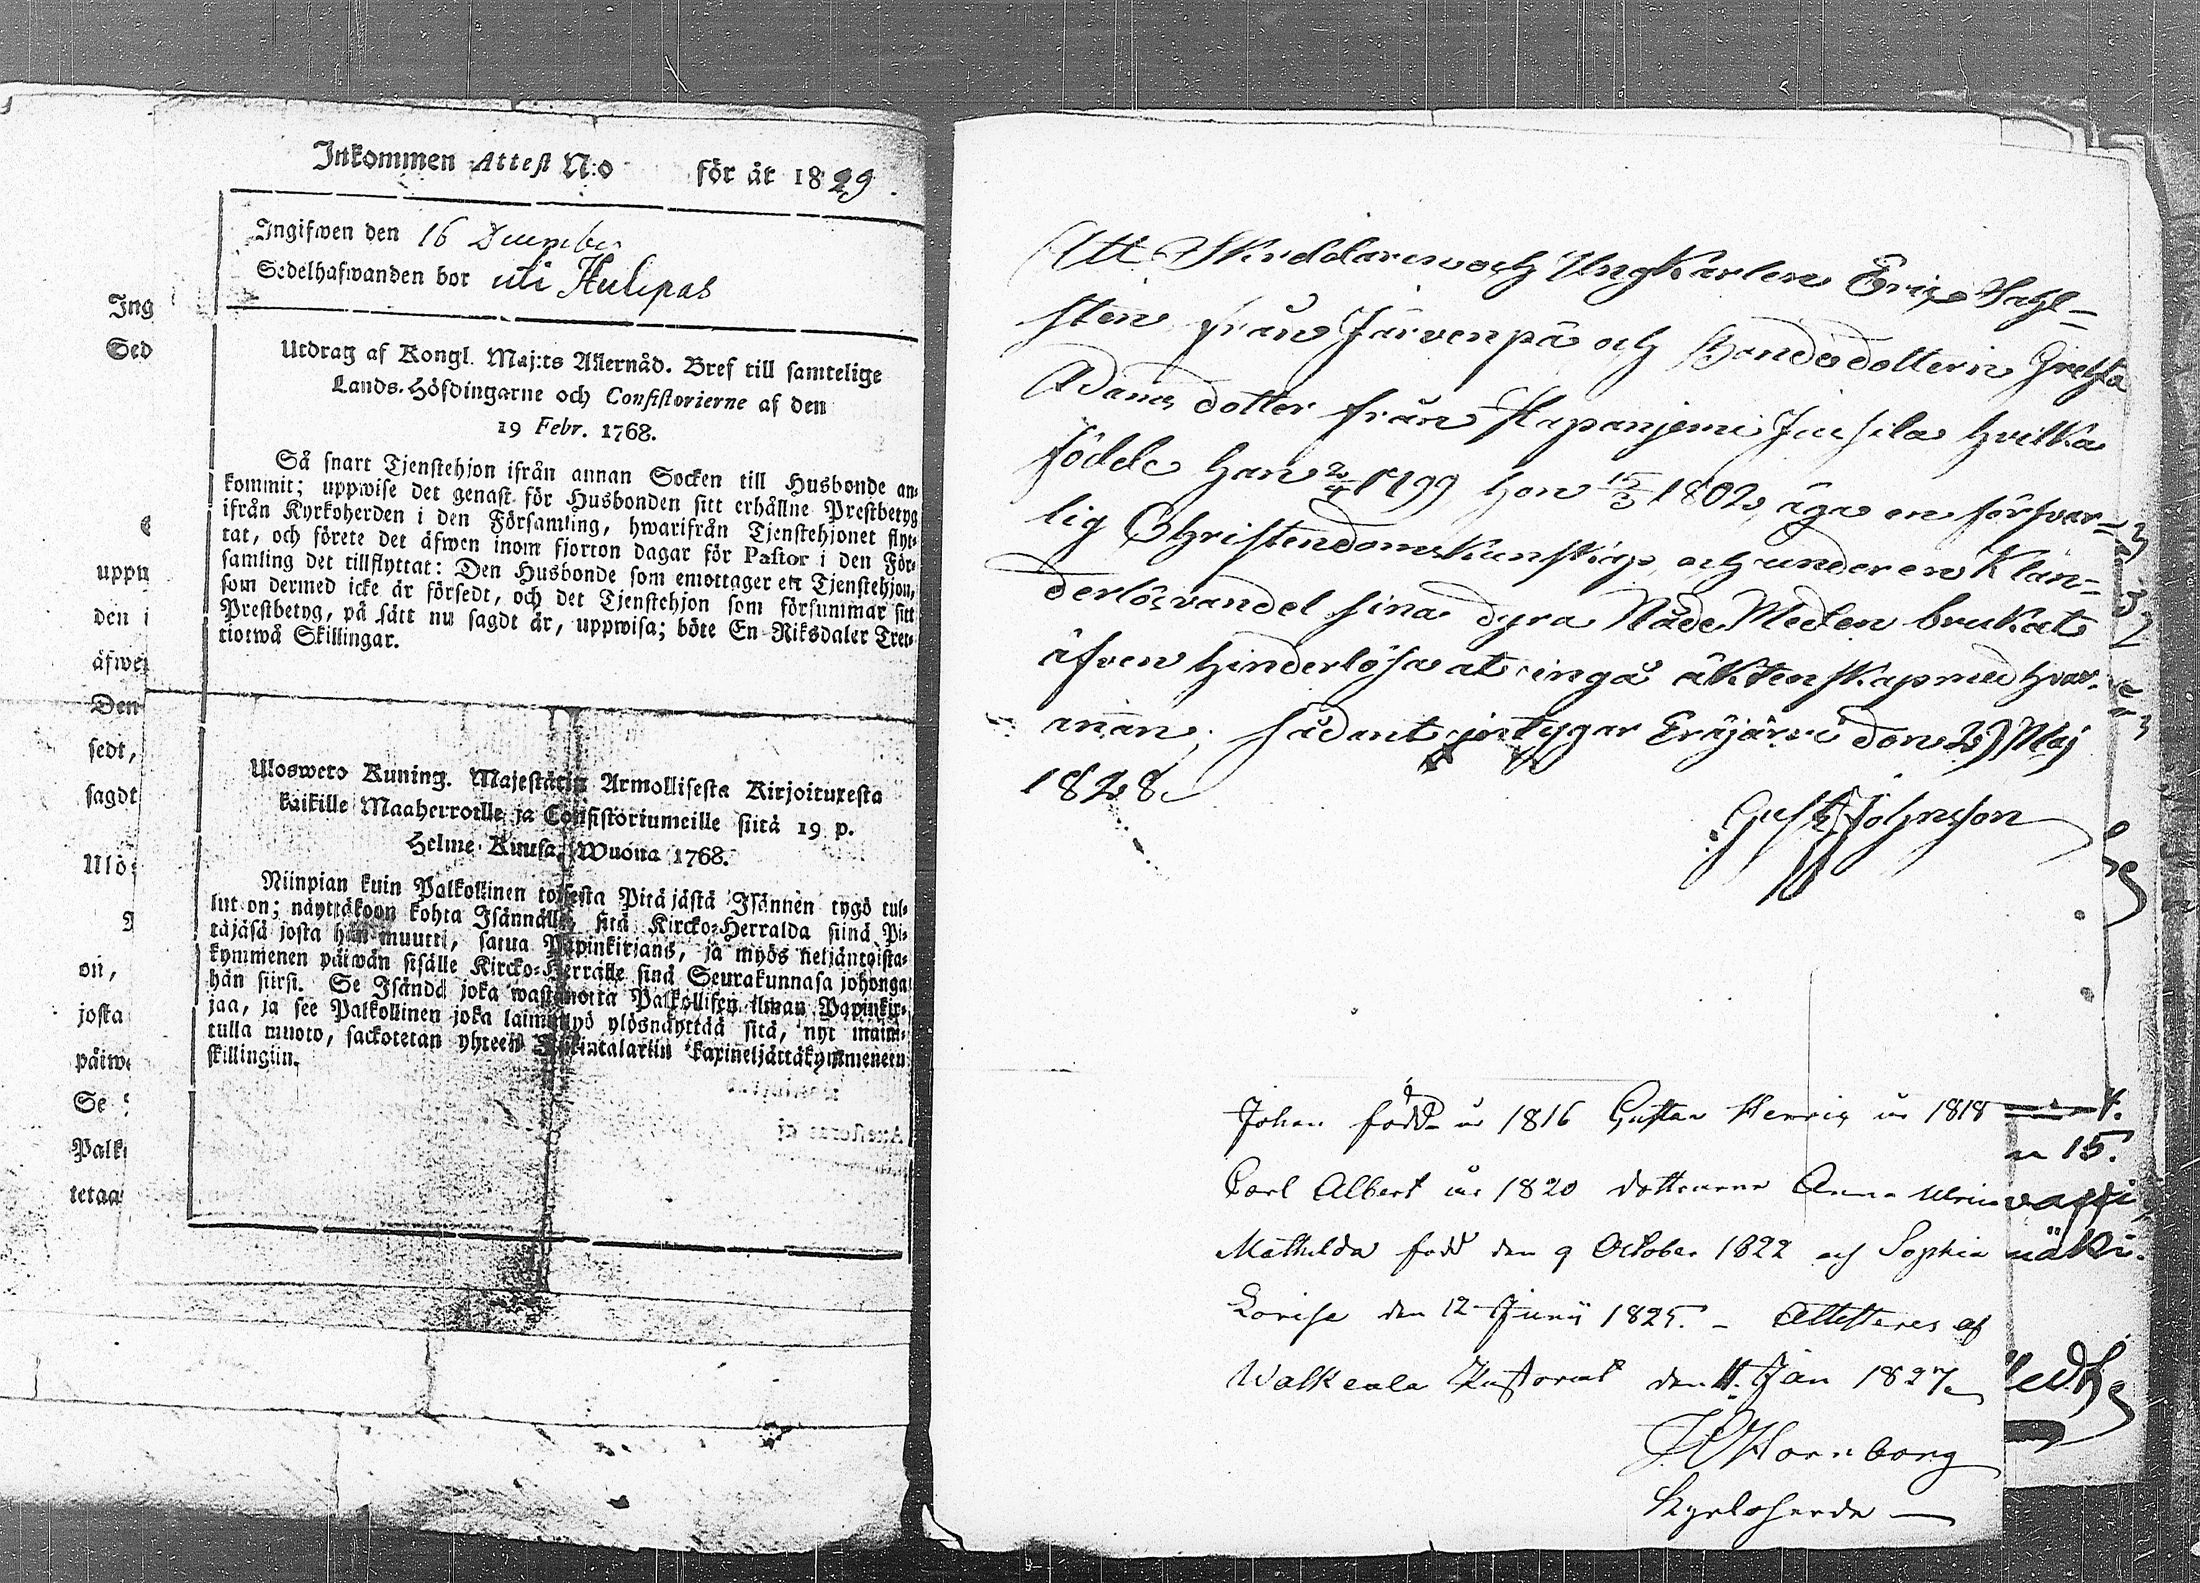 Inkommen Attest N:o för år 1829
Ingifwen den 16 December
Sedelhafwanden bor uti
Utdrag af Kongl. Maj:ts Allernåd. Bref till samtelige
Lands-Höfdingarne och Consistorierne af den
19 Febr. 1768.
Så snart Tjenstehjon ifrån annan Socken till Husbonde an-
kommit; uppwise det genast för Husbonden sitt erhållne Prestbetyg
ifrån Kyrkoherden i den Församling, hwarifrån Tjenstehjonet flyt-
tat, och förete det äfwen inom fjorton dagar för Pastor i den För-
samling det tillflyttat: Den Husbonde som emottager ett Tjenstehjon,
som dermed icke är försedt, och det Tjenstehjon som försummar sitt
Prestbetyg, på sätt nu sagdt är, uppwisa; böte En Riksdaler Tret-
tiotwå Skillingar.
Ulosweto Kuning. Majestätin Armollisesta Kirjoituxesta
kaikille Maaherroille ja Consistoriumeille siitä 19 p.
Helme-Kuusa, Wuona 1768.
Niinpian kuin Palkollinen toisesta Pitäjästä Isännen tygö tul-
lut on; näyttäkoon kohta Isännälle, sitä Kircko-Herralda siinä Pi-
täjäsä josta hän muutti, satua Papinkirjans, ja myös neljäntoista-
kymmenen päiwän sisälle Kircko-Herralle sinä Seurakunnasa johonga
hän siirsi. Se Isändä joka wastanotta Palkollisen ilman Papinkir-
jaa, ja see Palkollinen joka laiminlyö ylösnäyttää sitä, nyt maini-
tulla muoto, sackotetan yhteen Rikintalariin kaxineljättäkymmeneen
skillingiin.
Ing
Sed
uppw
den i
äfwe
Den
sedt,
sagdt
Ulo
on,
josta
päiw
Se
Palk
tetaa
Att Skreddaren och Ungkarlen Eric Vahl-
sten från Järvenpä och Bondedottern Gretha
Adams dotter från Hapanjemi Jussila hvilka
födde han 2/4 1799 hon 15/3 1802, äga en försvar-
lig Christendoms Kunskap, och under en Klan-
derlös vandel sina dyra Nåde Medlen brukat
äfven hinderlösa at ingå äktenskap med hvar-
annan; sådant intygar Eräjärvi den 29 Maj
1828.
Gust. Johnsson
Johan född år 1816 Gustav Henric år 1818
Carl Albert år 1820 dottrarne Anna Ulrica
Mathilda född den 9 October 1822 och Sophia
Lovisa den 12 Junii 1825. – Attesteras af
Walkeala Pastorat den 11. Jan 1827
Hornborg
Kyrkoherde
15.
näki.